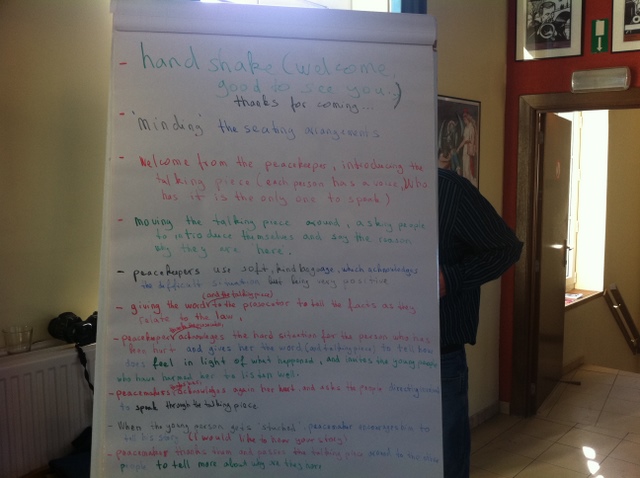 - hand shake (welcome,
good to see you..)
thanks for coming...
- 'minding' the seating arrangements
- Welcome from the peacekeeper, introducing the
talking piece (each person has a voice, Who
has it is the only one to speak)
- moving the talking piece around, asking people
to introduce themselves and say the reason
why they are here.
- peacekeepers use soft, kind language, which acknowledges
the difficult situation but being very positive
(and the talking piece)
- giving the word to the prosecutor to tell the facts as they
relate to the law,
- peacekeeper acknowledges the hard situation for the person who has
been hurt and gives her the word (and talking piece) to tell how
does feel in light of what happened, and invites the young people
who have harmed her to listen well.
- peacemakers acknowledges again her hurt, and asks the people directly
to speak through the talking piece.
- When the young person gets 'stucked', peacemaker
tell his story (I would like to hear your story)
- peacemaker thanks them and passes the talking piece around to the other
people to tell more about why are they here